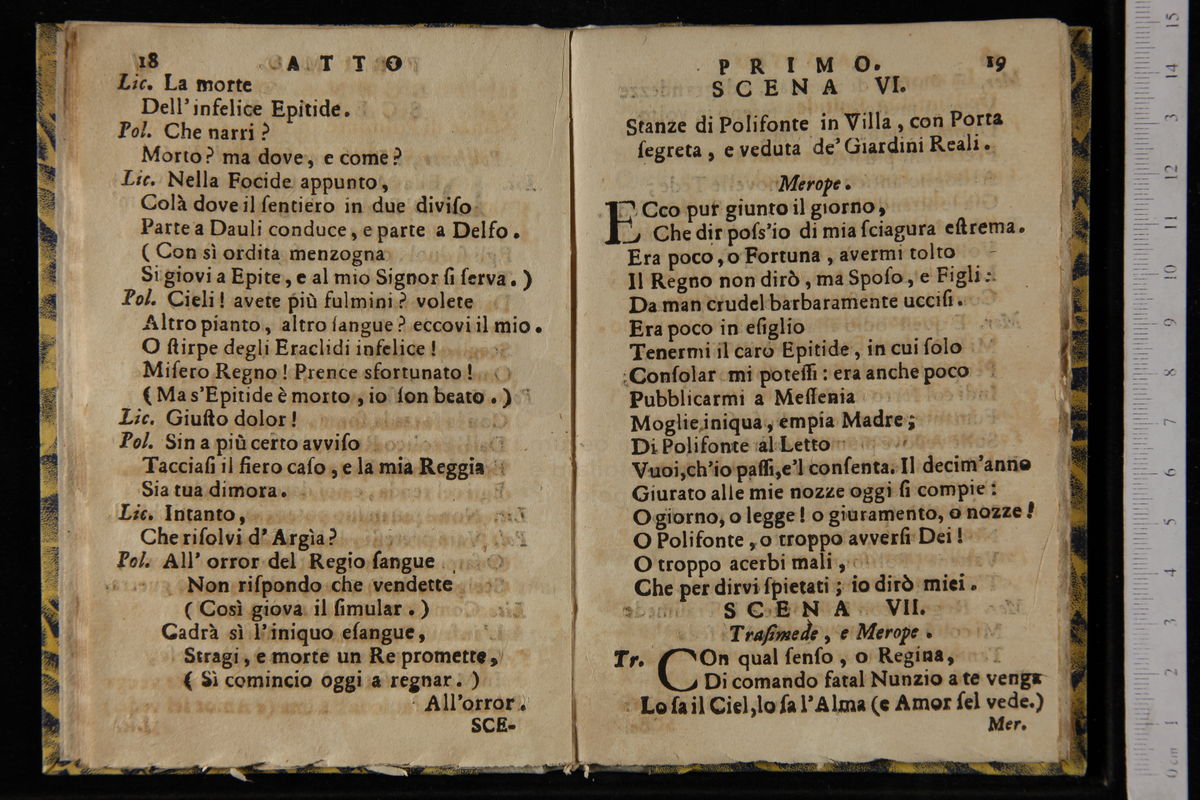 18 ATTO
Lic. La morte
Dell'infelice Epitide.
Pol. Che narri ?
Morto? ma dove, e come?
Lic. Nella Focide appunto,
Colà dove il ſentiero in due diviſo
Parte a Dauli conduce, e parte a Delfo.
( Con sì ordita menzogna
Si giovi a Epite, e al mio Signor ſi ſerva. )
Pol. Cieli ! avete più fulmini ? volete
Altro pianto, altro ſangue? eccovi il mio.
O ſtirpe degli Eraclidi infelice !
Miſero Regno ! Prence sfortunato !
( Ma s'Epitide è morto, io ſon beato. )
Lic. Giuſto dolor !
Pol. Sin a più certo avviſo
Tacciaſi il fiero caſo, e la mia Reggia
Sia tua dimora.
Lic. Intanto,
Che riſolvi d'Argìa?
Pol. All' orror del Regio ſangue
Non riſpondo che vendette
( Così giova il ſimular. )
Cadrà sì l'iniquo eſangue,
Stragi, e morte un Re promette,
( Sì comincio oggi a regnar. )
All'orror.
SCE-
PRIMO. 19
SCENA VI.
Stanze di Polifonte in Villa, con Porta
ſegreta, e veduta de' Giardini Reali.
Merope.
ECco pur giunto il giorno,
Che dir poſs'io di mia ſciagura eſtrema.
Era poco, o Fortuna, avermi tolto
Il Regno non dirò, ma Spoſo, e Figli:
Da man crudel barbaramente ucciſi.
Era poco in eſiglio
Tenermi il caro Epitide, in cui ſolo
Conſolar mi poteſſi : era anche poco
Pubblicarmi a Meſſenia
Moglie iniqua, empia Madre;
Di Polifonte al Letto
Vuoi,ch'io paſſi,e'l conſenta. Il decim'anno
Giurato alle mie nozze oggi ſi compie :
O giorno, o legge ! o giuramento, o nozze !
O Polifonte, o troppo avverſi Dei !
O troppo acerbi mali,
Che per dirvi ſpietati ; io dirò miei.
SCENA VII.
Traſimede, e Merope.
Tr. COn qual ſenſo, o Regina,
Di comando fatal Nunzio a te venga
Lo ſa il Ciel,lo ſa l'Alma (e Amor ſel vede.)
Mer.
15
14
3
12
11
10
9
8
7
6
5
4
3
2
1
0 cm